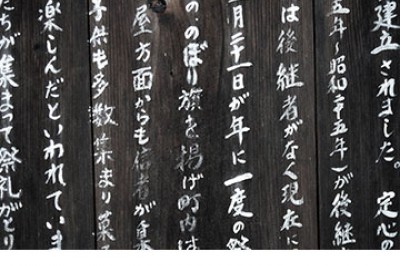 建立されました。定心の
五年～昭和二十五年)が後継
は後継者がなく現在に
月二十一日が年に一度の祭
の、のぼり旗を揚げ町内は
屋方面からも信者が
子供も多数集まり菓子
楽しんだといわれていま
たちが集まって祭礼がとり